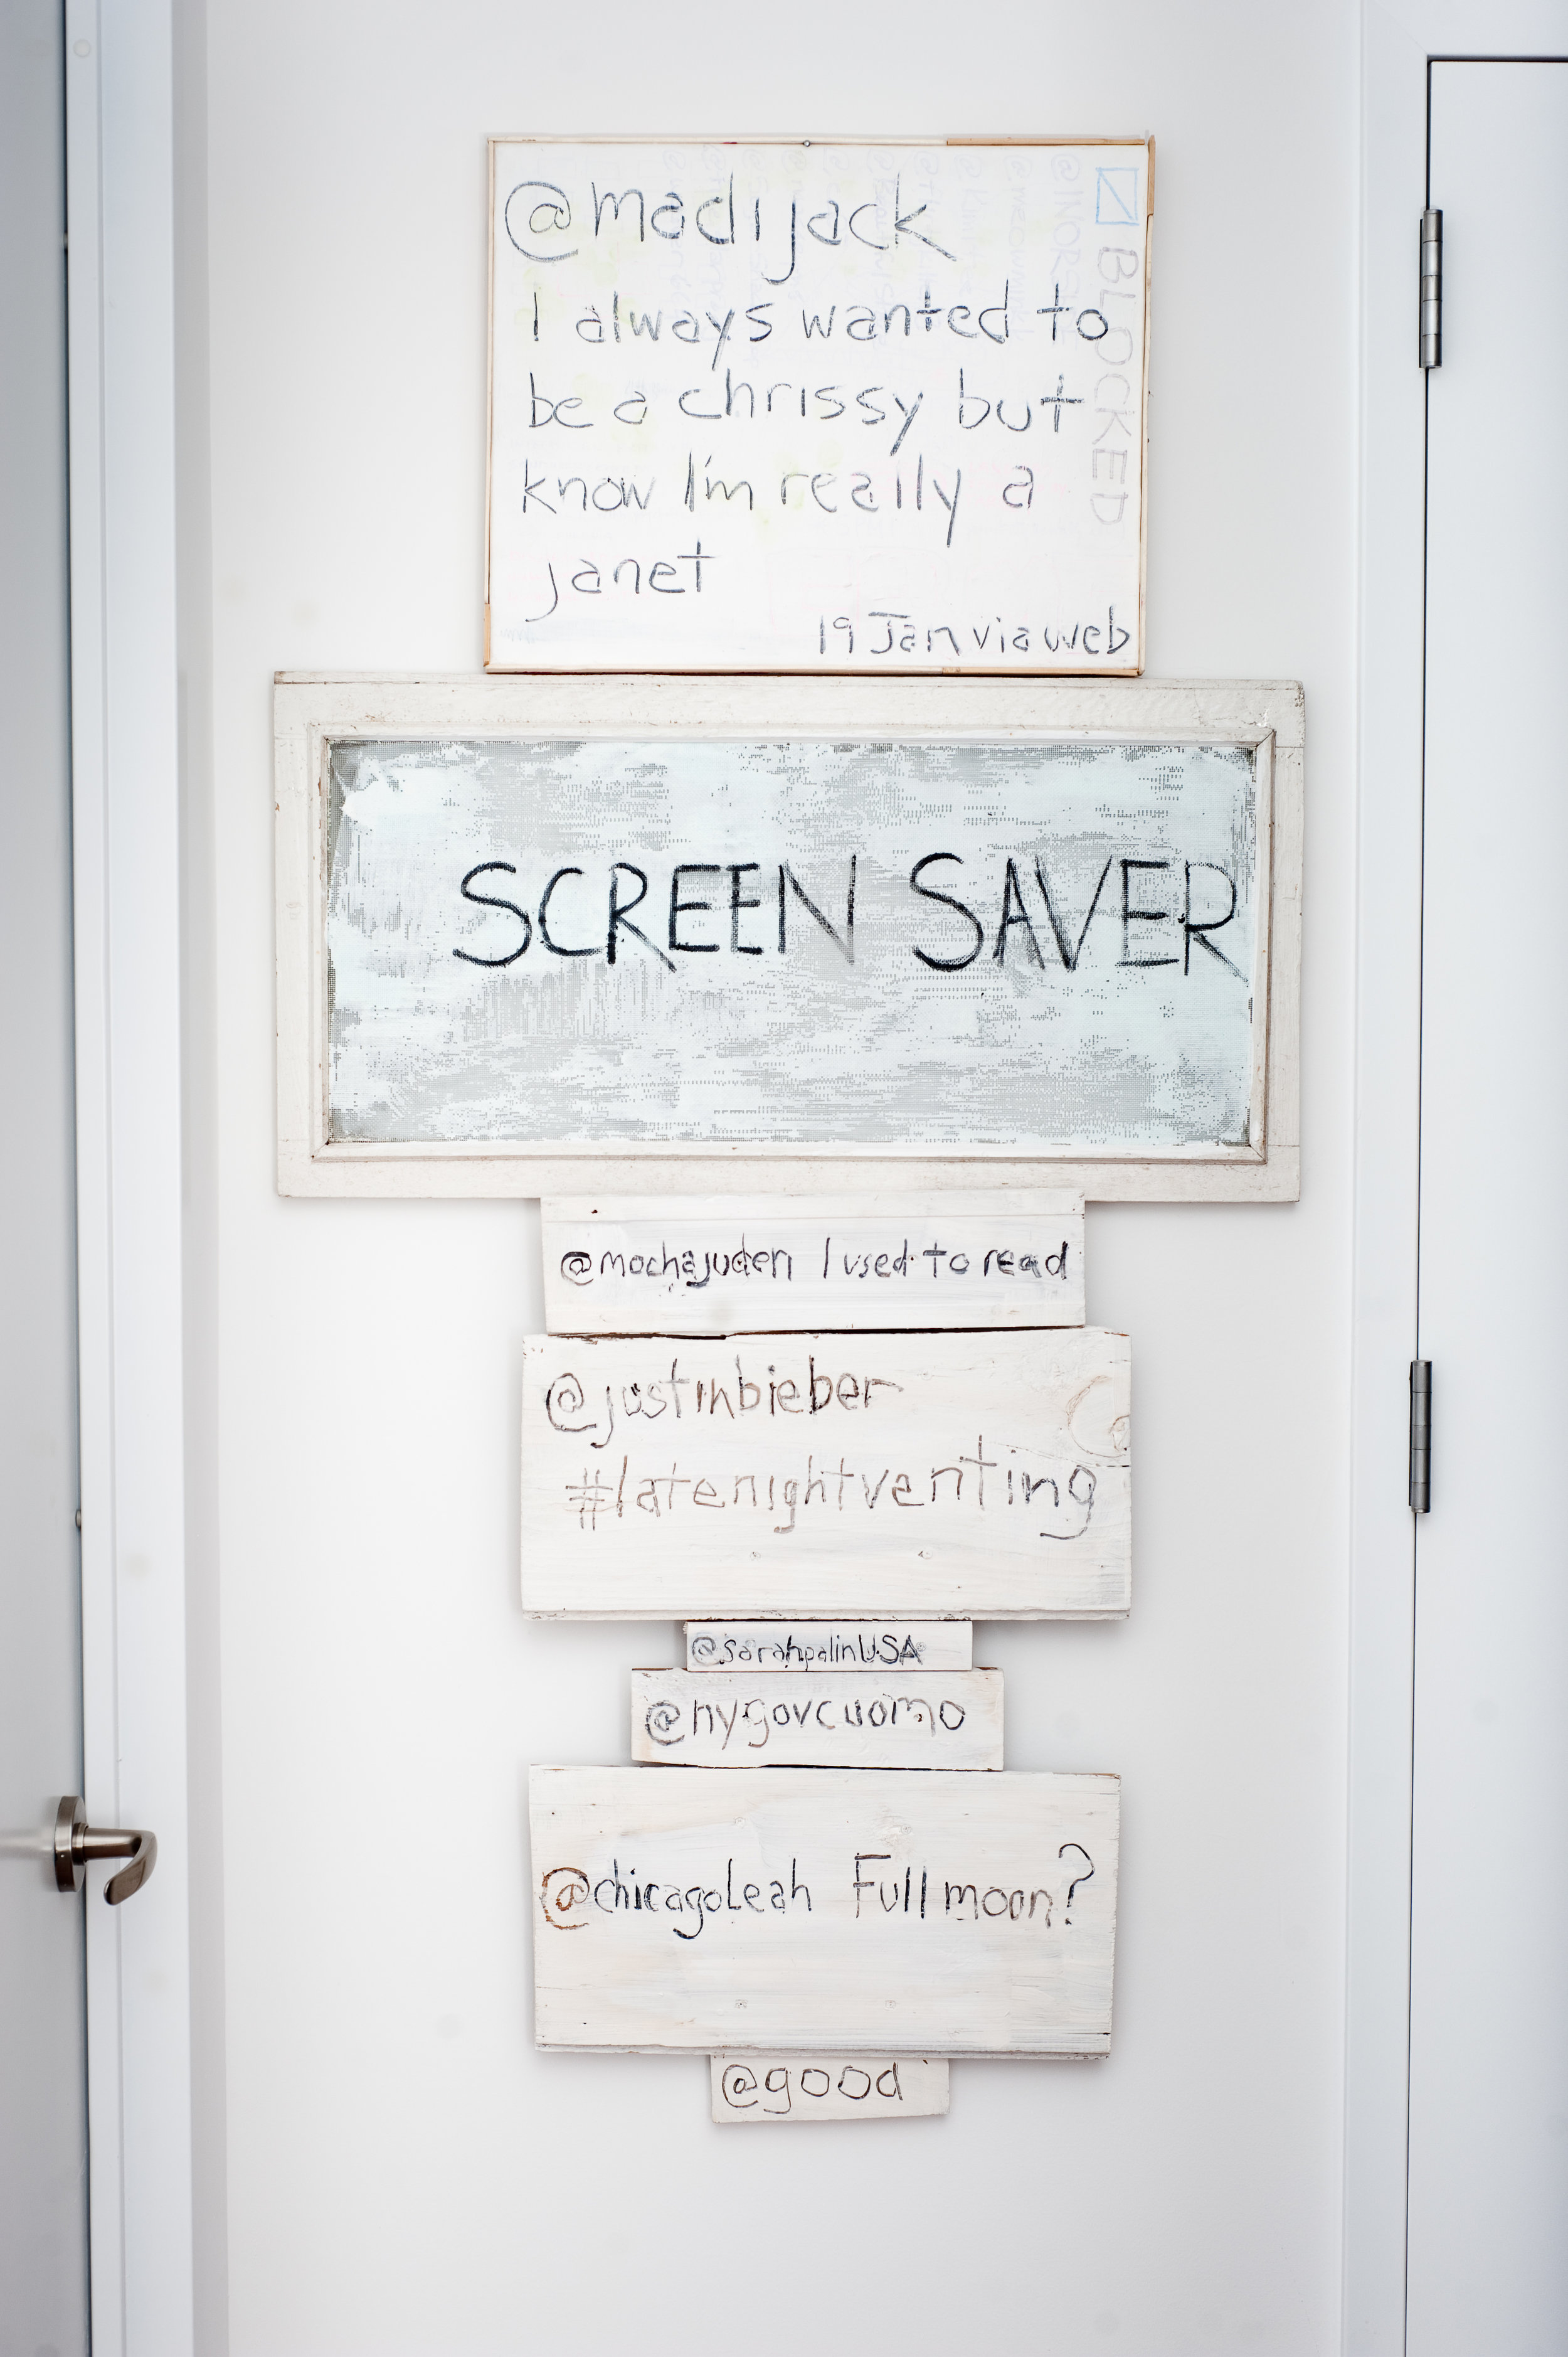 @madijack
I always wanted to
be a chrissy but
know I'm really a
janet
19 Jan via web
BLOCKED
SCREEN SAVER
@mochajuden I used to read
@justinbieber
#latenightventing
@sarahpalinUSA
@nygovcuomo
@chicagoLeah Full moon?
@good